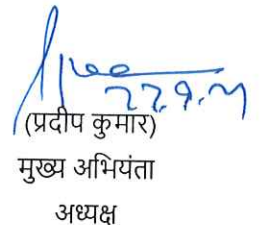 (प्रदीप कुमार)
मुख्य अभियंता
अध्यक्ष